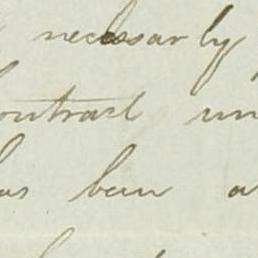 necessarly
ontract un
as been a